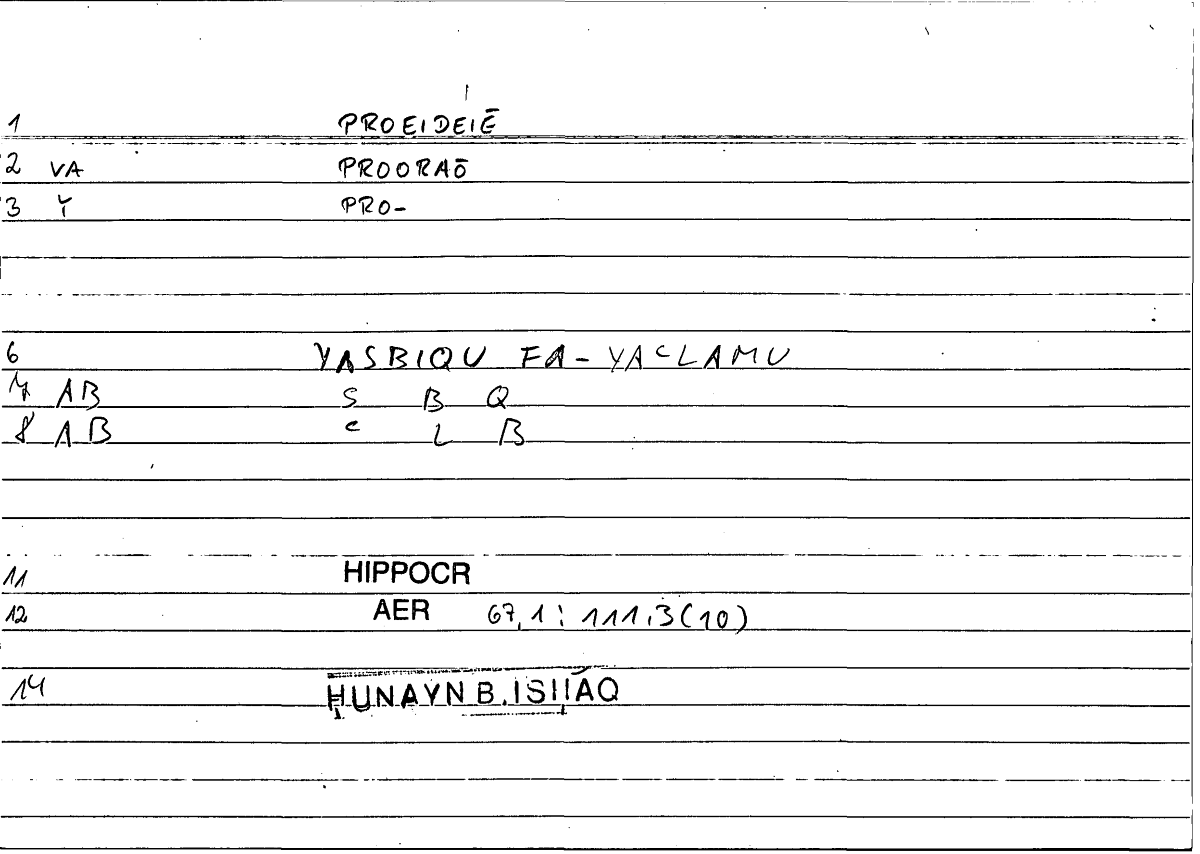 1 PROEIDEIĒ
2 VA PROORAŌ
3 Y PRO-
6 YASBIQU FA-YAᶜLAMU
7 AB S B Q
8 AB ᶜ L B
11 HIPPOCR
12 AER 67,1 : 111,3(10)
14 ḤUNAYN B.ISḤĀQ